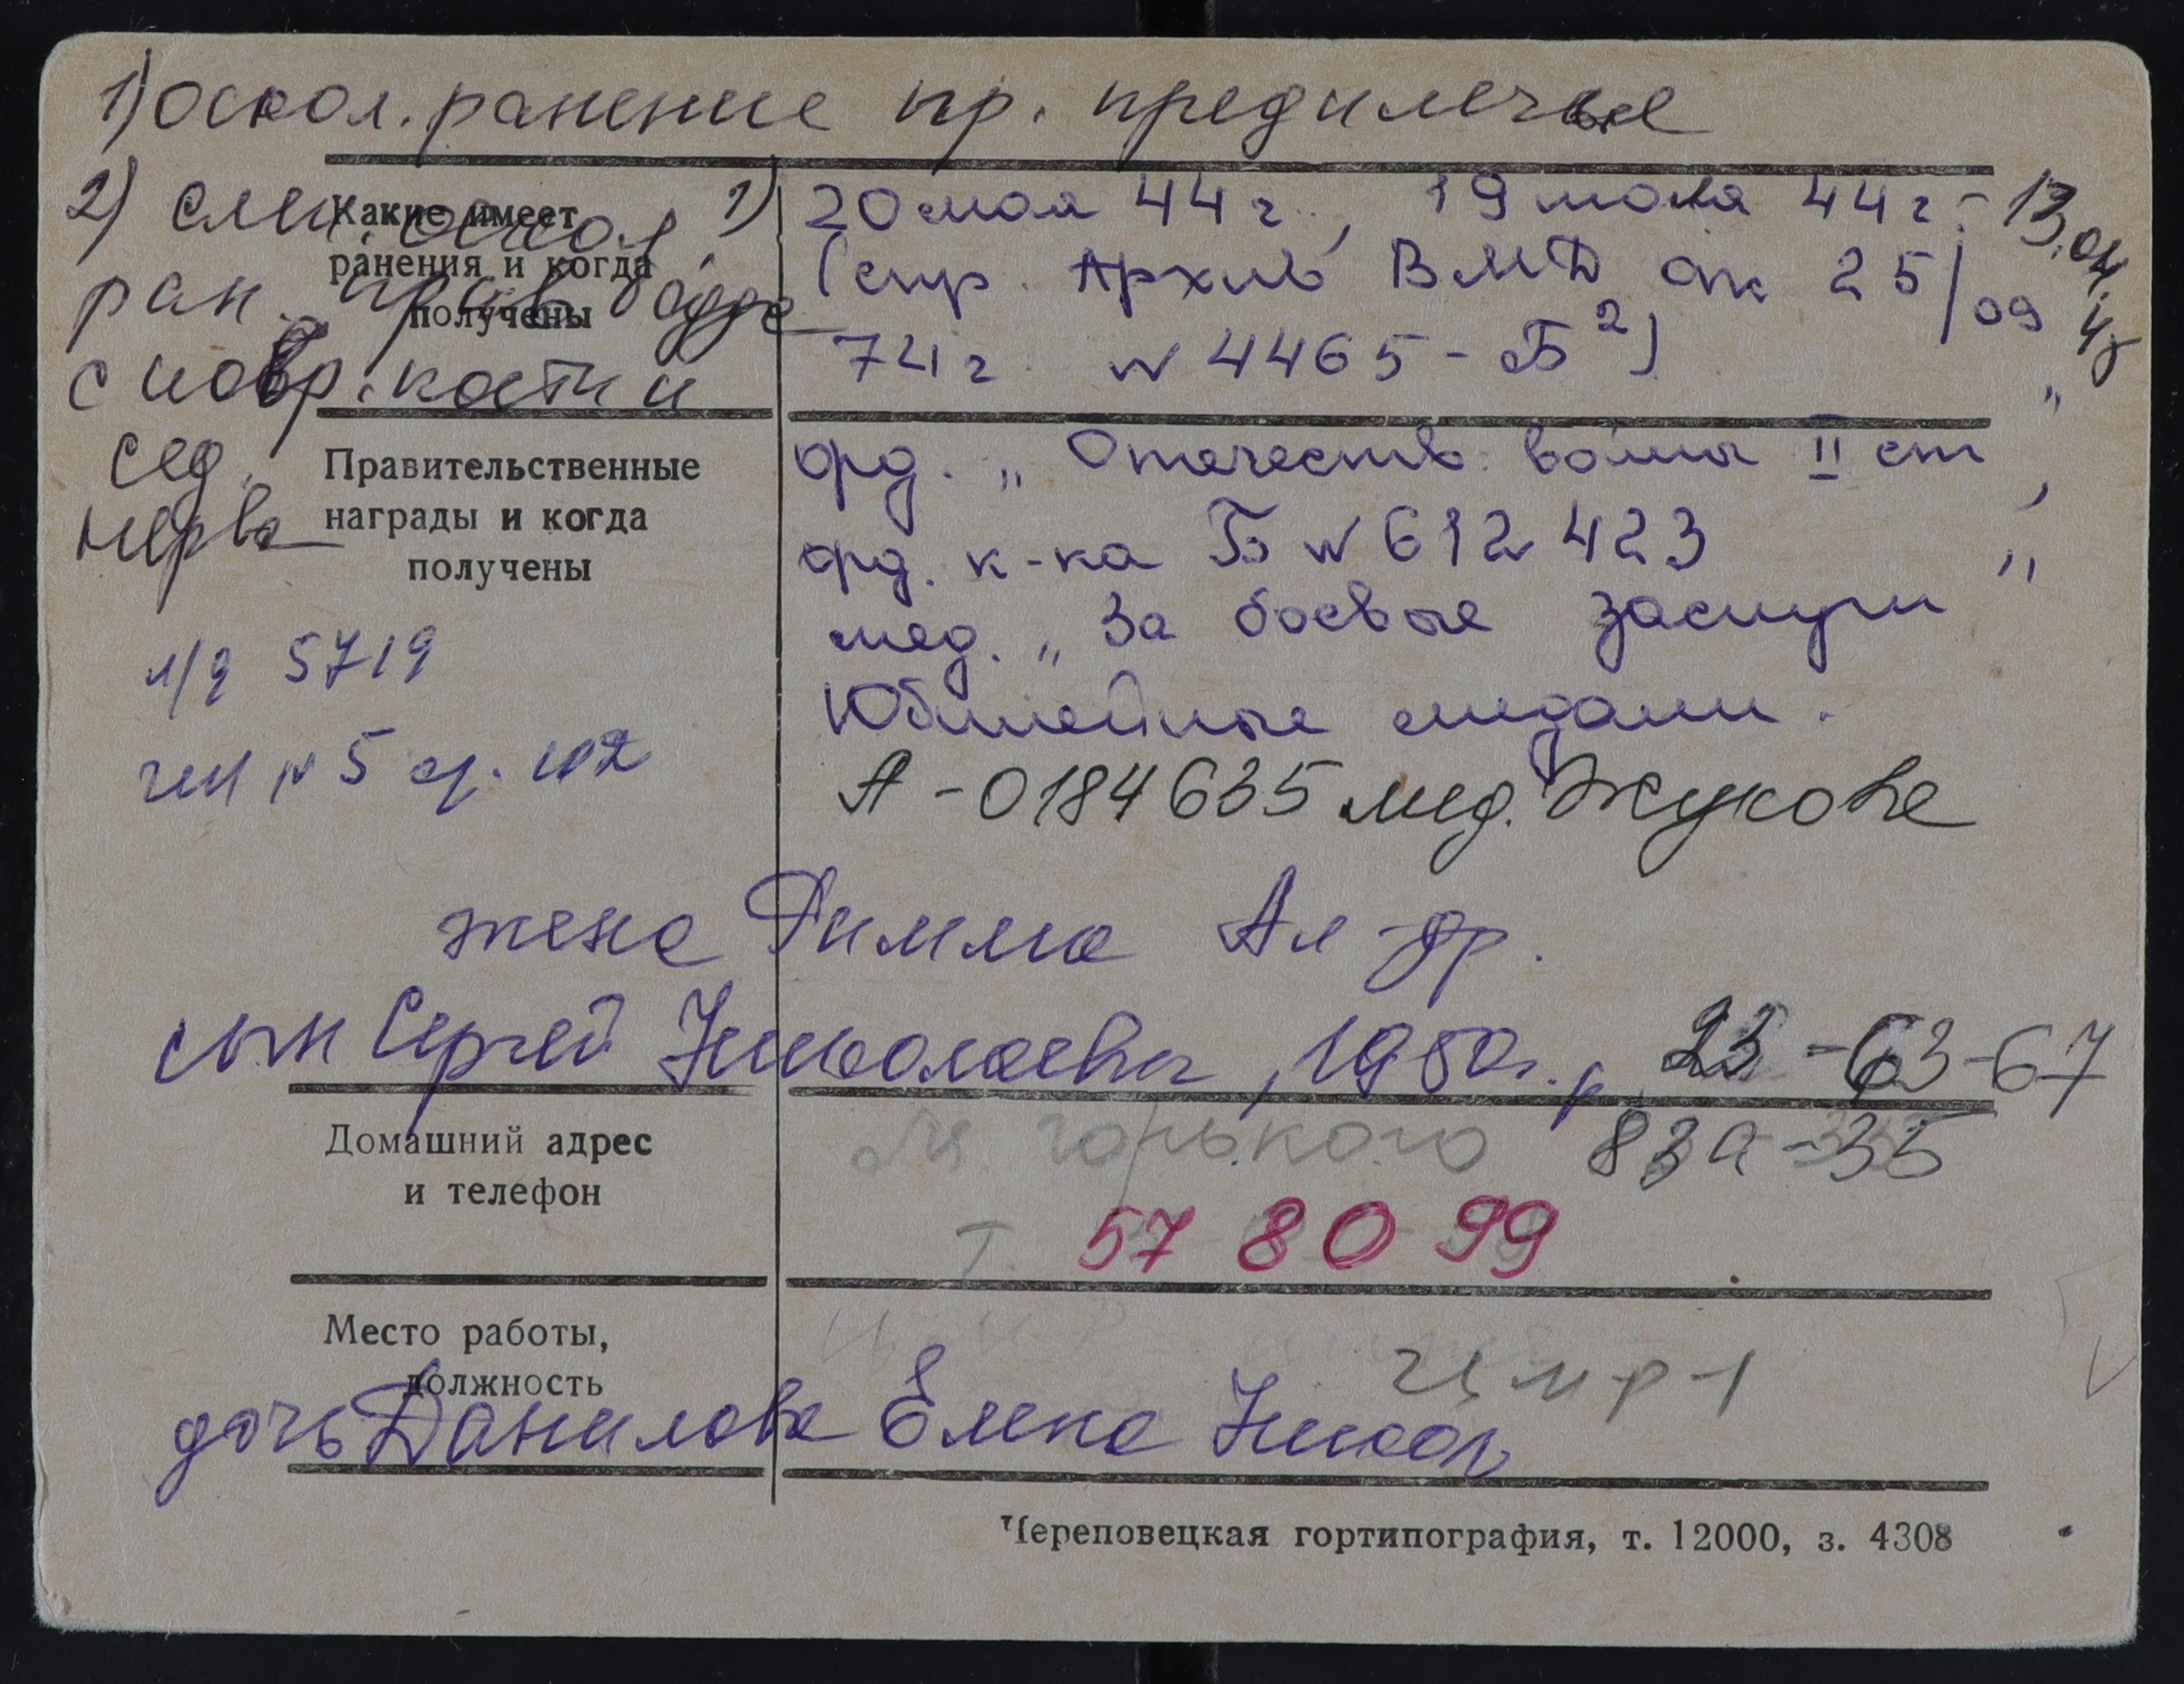 1) оскол. ранение пр. предплечья
2) слеп. оскол.
ран. прав. бедра
с повр. кости
сед.
нерва
Какие имеет
ранения и когда
получены
1) 20 мая 44 г., 19 июля 44 г. - 13.04.45
(спр. Архив ВМД от 25/09
74 г. N 4465 - Б 2)
Правительственные
награды и когда
получены
орд. „Отечеств. войны II ст",
орд. к-ка Б N 612 423
мед. „За боевые заслуги"
Юбилейные медали.
А - 0184635 мед. Жукова
л/д 5719
N 5
жена Римма Ал-др.
сын Сергей Николаевич, 1950 г.р. 23-63-67
Домашний адрес
и телефон
Горького 83а-35
т. 57 80 99
Место работы,
должность
дочь Данилова Елена Никол
Череповецкая гортипография, т. 12000, з. 4308